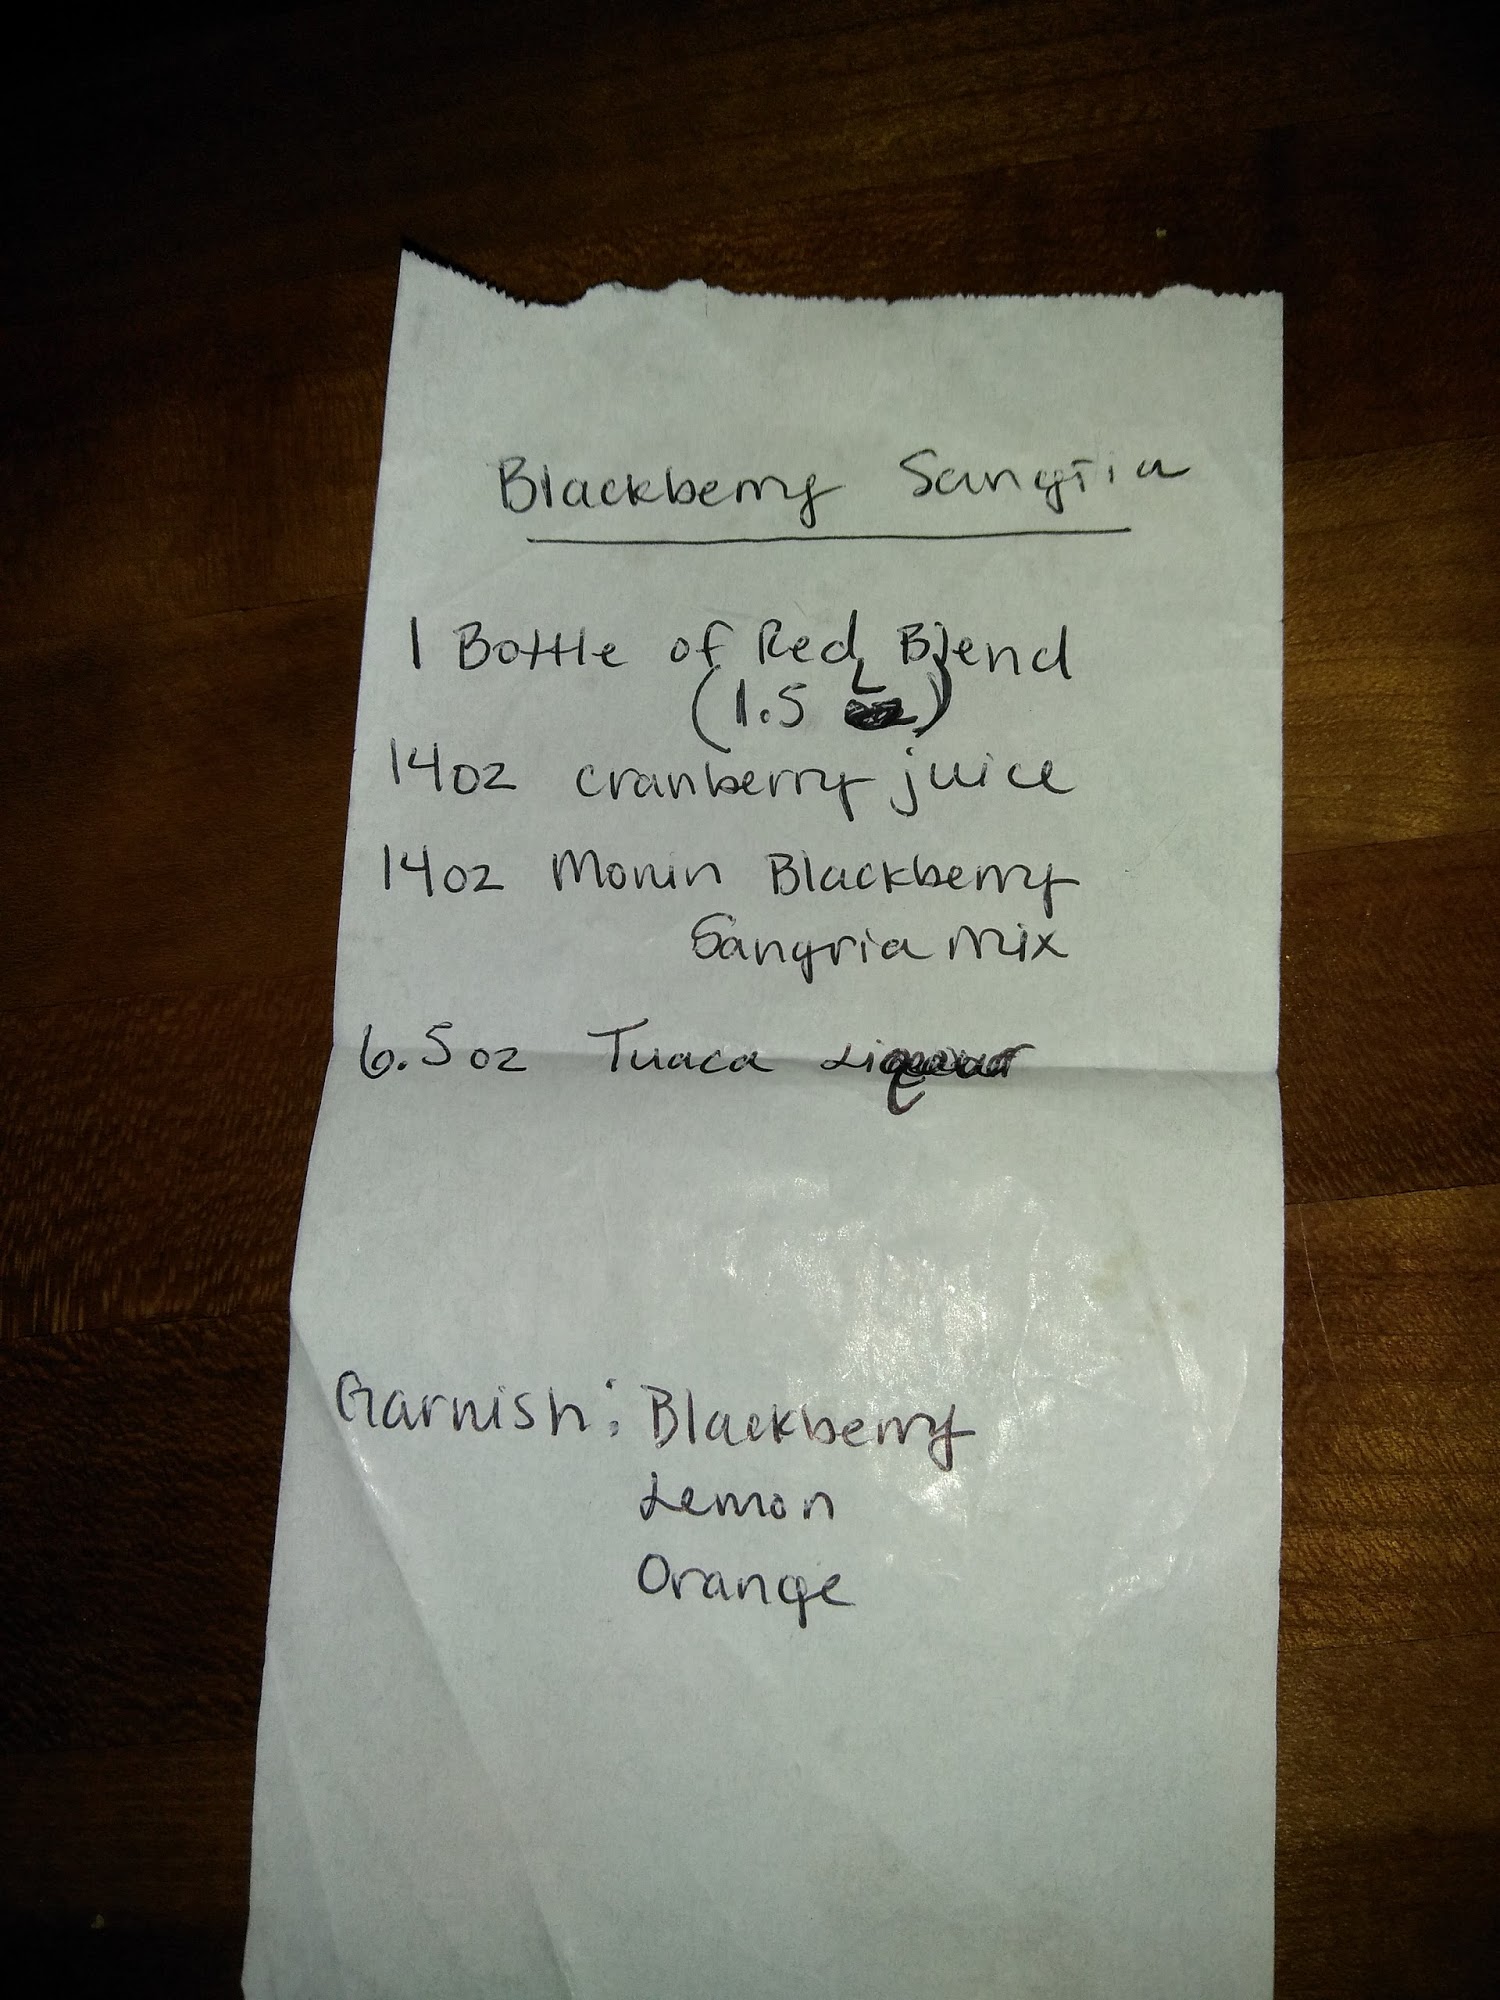 Blackberry Sangria
1 Bottle of Red Blend
(1.5 L)
14oz cranberry juice
14oz Monin Blackberry
Sangria Mix
6.5oz Tuaca Liqueur
Garnish: Blackberry
Lemon
Orange